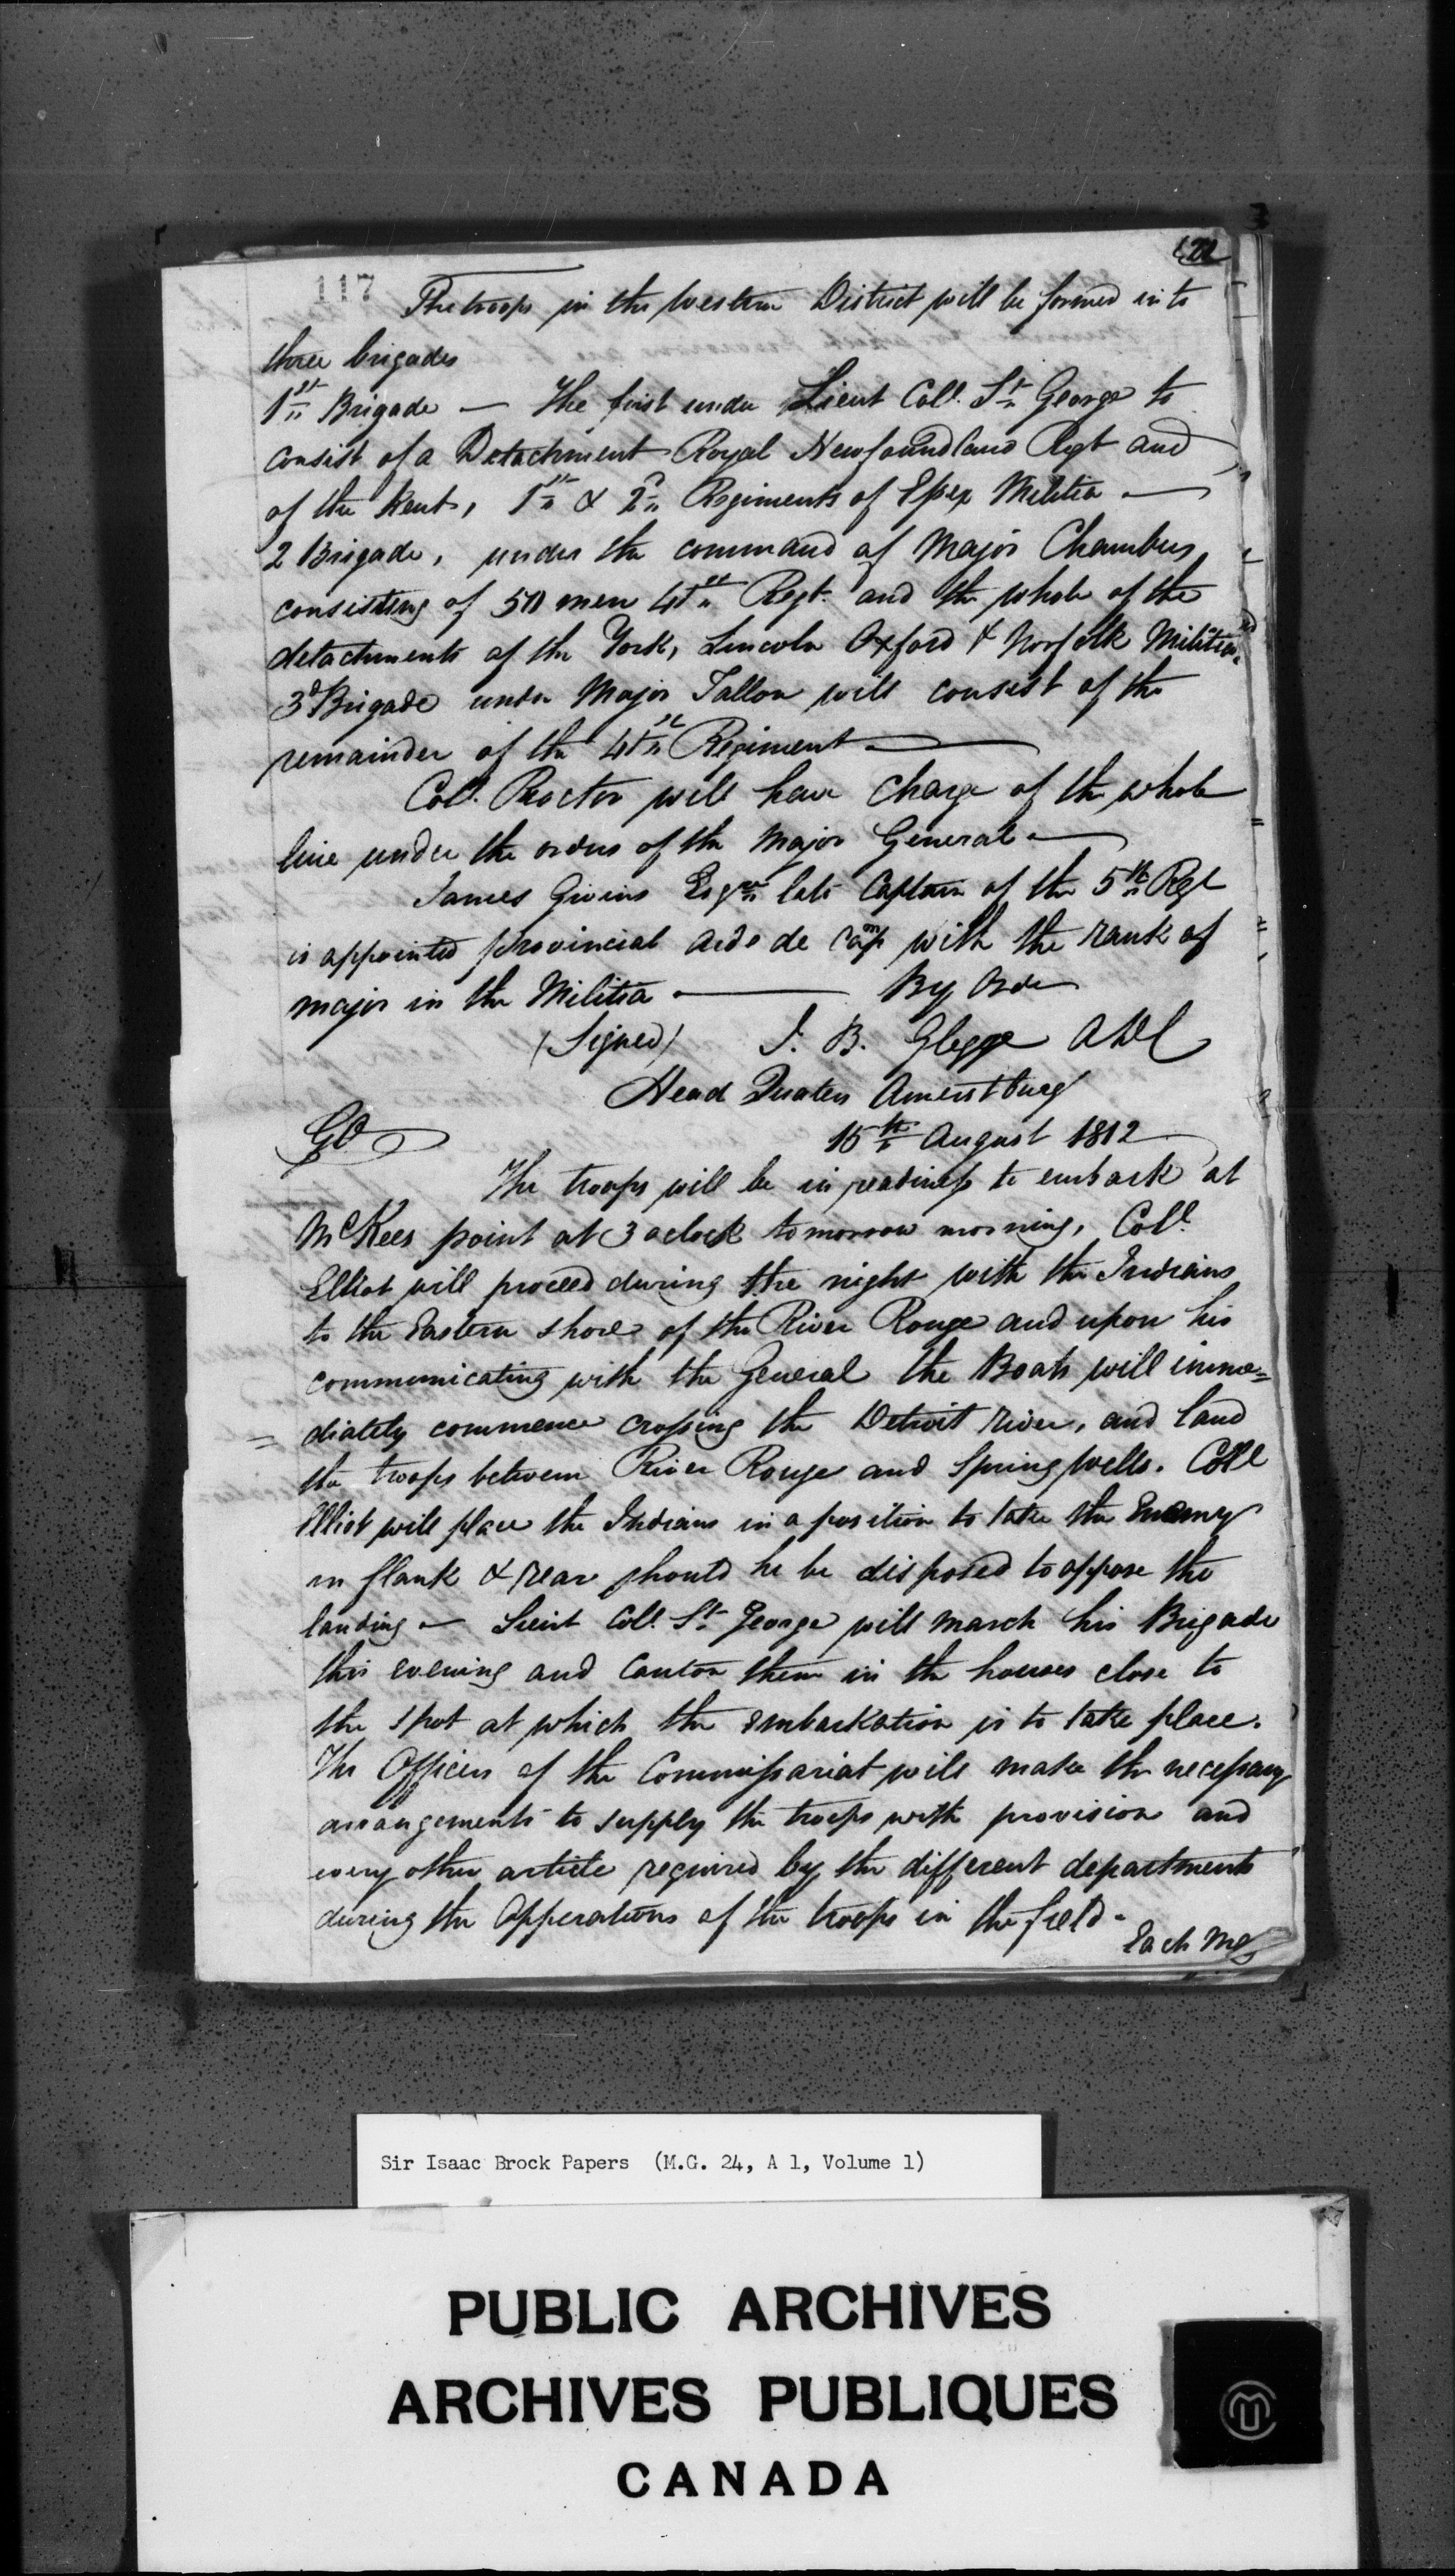 117
The troops in the Western District will be formed into
three brigades
1st Brigade — The first under Lieut Coll. St. George to
consist of a Detachment Royal Newfoundland Regt and
of the Kent, 1st & 2d Regiments of Essex Militia —
2 Brigade, under the command of Major Chambers
consisting of 50 men 41st Regt. and the whole of the
detachments of the York, Lincoln Oxford & Norfolk Militia.
3d Brigade under Major Tallon will consist of the
remainder of the 41st Regiment —
Coll. Procter will have charge of the whole
line under the orders of the Major General —
James Givins Esqre late Captain of the 5th Regt
is appointed provincial aid de camp with the rank of
major in the Militia — By Order
(Signed) J. B. Glegg ADC
Head Quaters Amerstburg
GO 15th August 1812
The troops will be in readiness to embark at
McKees point at 3 oclock tomorrow morning, Coll.
Elliot will proceed during the night with the Indians
to the Eastern shore of the River Rouge and upon his
communicating with the General the Boats will imme=
diately commence crossing the Detroit river, and land
the troops between River Rouge and Spring wells. Coll
Elliot will place the Indians in a position to take the Enemy
in flank & rear should he be disposed to oppose the
landing — Lieut Coll. St. George will march his Brigade
this evening and Canton them in the houses close to
the spot at which the embarkation is to take place.
The Officers of the Commissariat will make the necessary
arrangements to supply the troops with provision and
every other article required by the different departments
during the Opperations of the troops in the field.
Each
Sir Isaac Brock Papers (M.G. 24, A 1, Volume 1)
PUBLIC ARCHIVES
ARCHIVES PUBLIQUES
CANADA